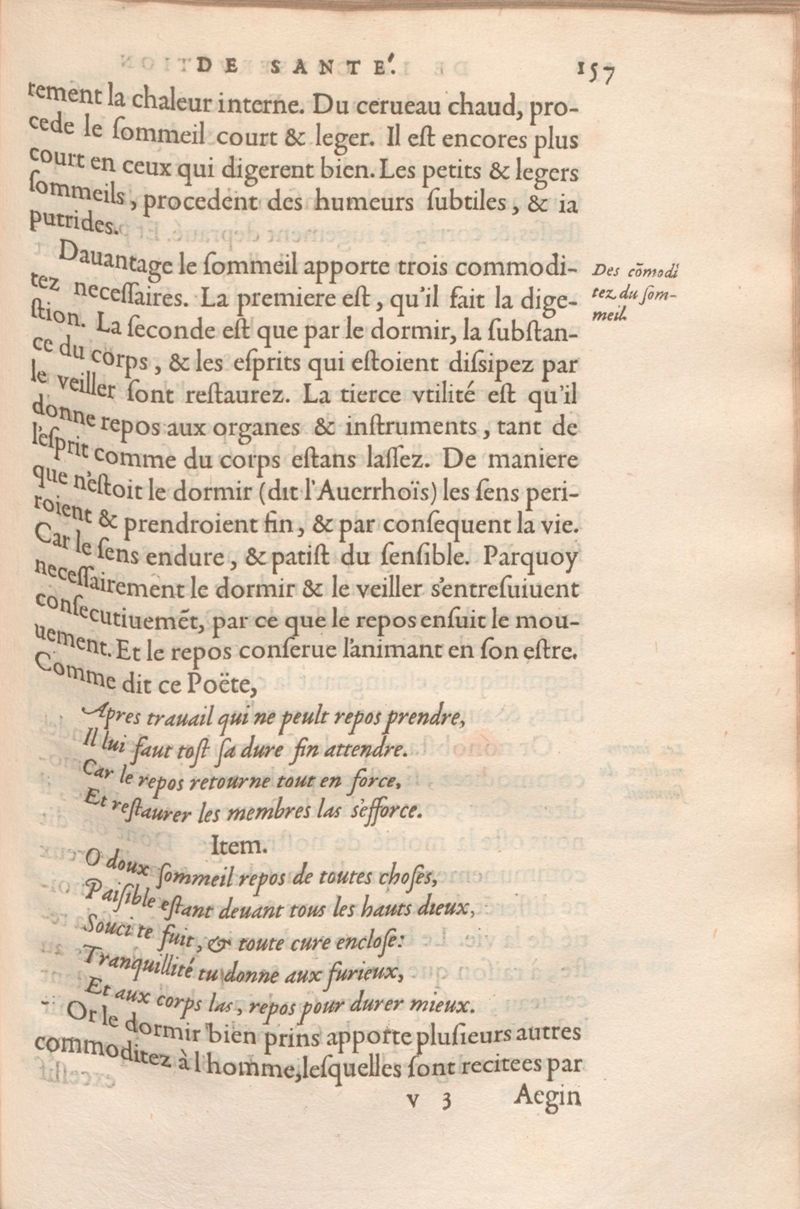 DE SANTE'.
157
tement la chaleur interne. Du cerueau chaud, pro-
cede le ſommeil court & leger. Il eſt encores plus
court en ceux qui digerent bien. Les petits & legers
ſommeils, procedent des humeurs ſubtiles, & ia
putrides.
Dauantage le ſommeil apporte trois commodi-
tez neceſſaires. La premiere eſt, qu'il fait la dige-
ſtion. La ſeconde eſt que par le dormir, la ſubſtan-
ce du corps, & les eſprits qui eſtoient diſsipez par
le veiller ſont reſtaurez. La tierce vtilité eſt qu'il
donne repos aux organes & inſtruments, tant de
l'eſprit comme du corps eſtans laſſez. De maniere
que n'eſtoit le dormir (dit l'Auerrhoïs) les ſens peri-
roient & prendroient fin, & par conſequent la vie.
Car le ſens endure, & patiſt du ſenſible. Parquoy
neceſſairement le dormir & le veiller s'entreſuiuent
conſecutiuemẽt, par ce que le repos enſuit le mou-
uement. Et le repos conſerue l'animant en ſon eſtre.
Comme dit ce Poëte,
Apres trauail qui ne peult repos prendre,
Il lui faut toſt ſa dure fin attendre.
Car le repos retourne tout en force,
Et reſtaurer les membres las s'efforce.
Item.
O doux ſommeil repos de toutes choſes,
Paiſible eſtant deuant tous les hauts dieux,
Souci te fuit, & toute cure encloſe:
Tranquillité tu donne aux furieux,
Et aux corps las, repos pour durer mieux.
Or le dormir bien prins apporte pluſieurs autres
commoditez à l'homme, leſquelles ſont recitees par
v 3 Aegin
Des cõmodi
tez du ſom-
meil.